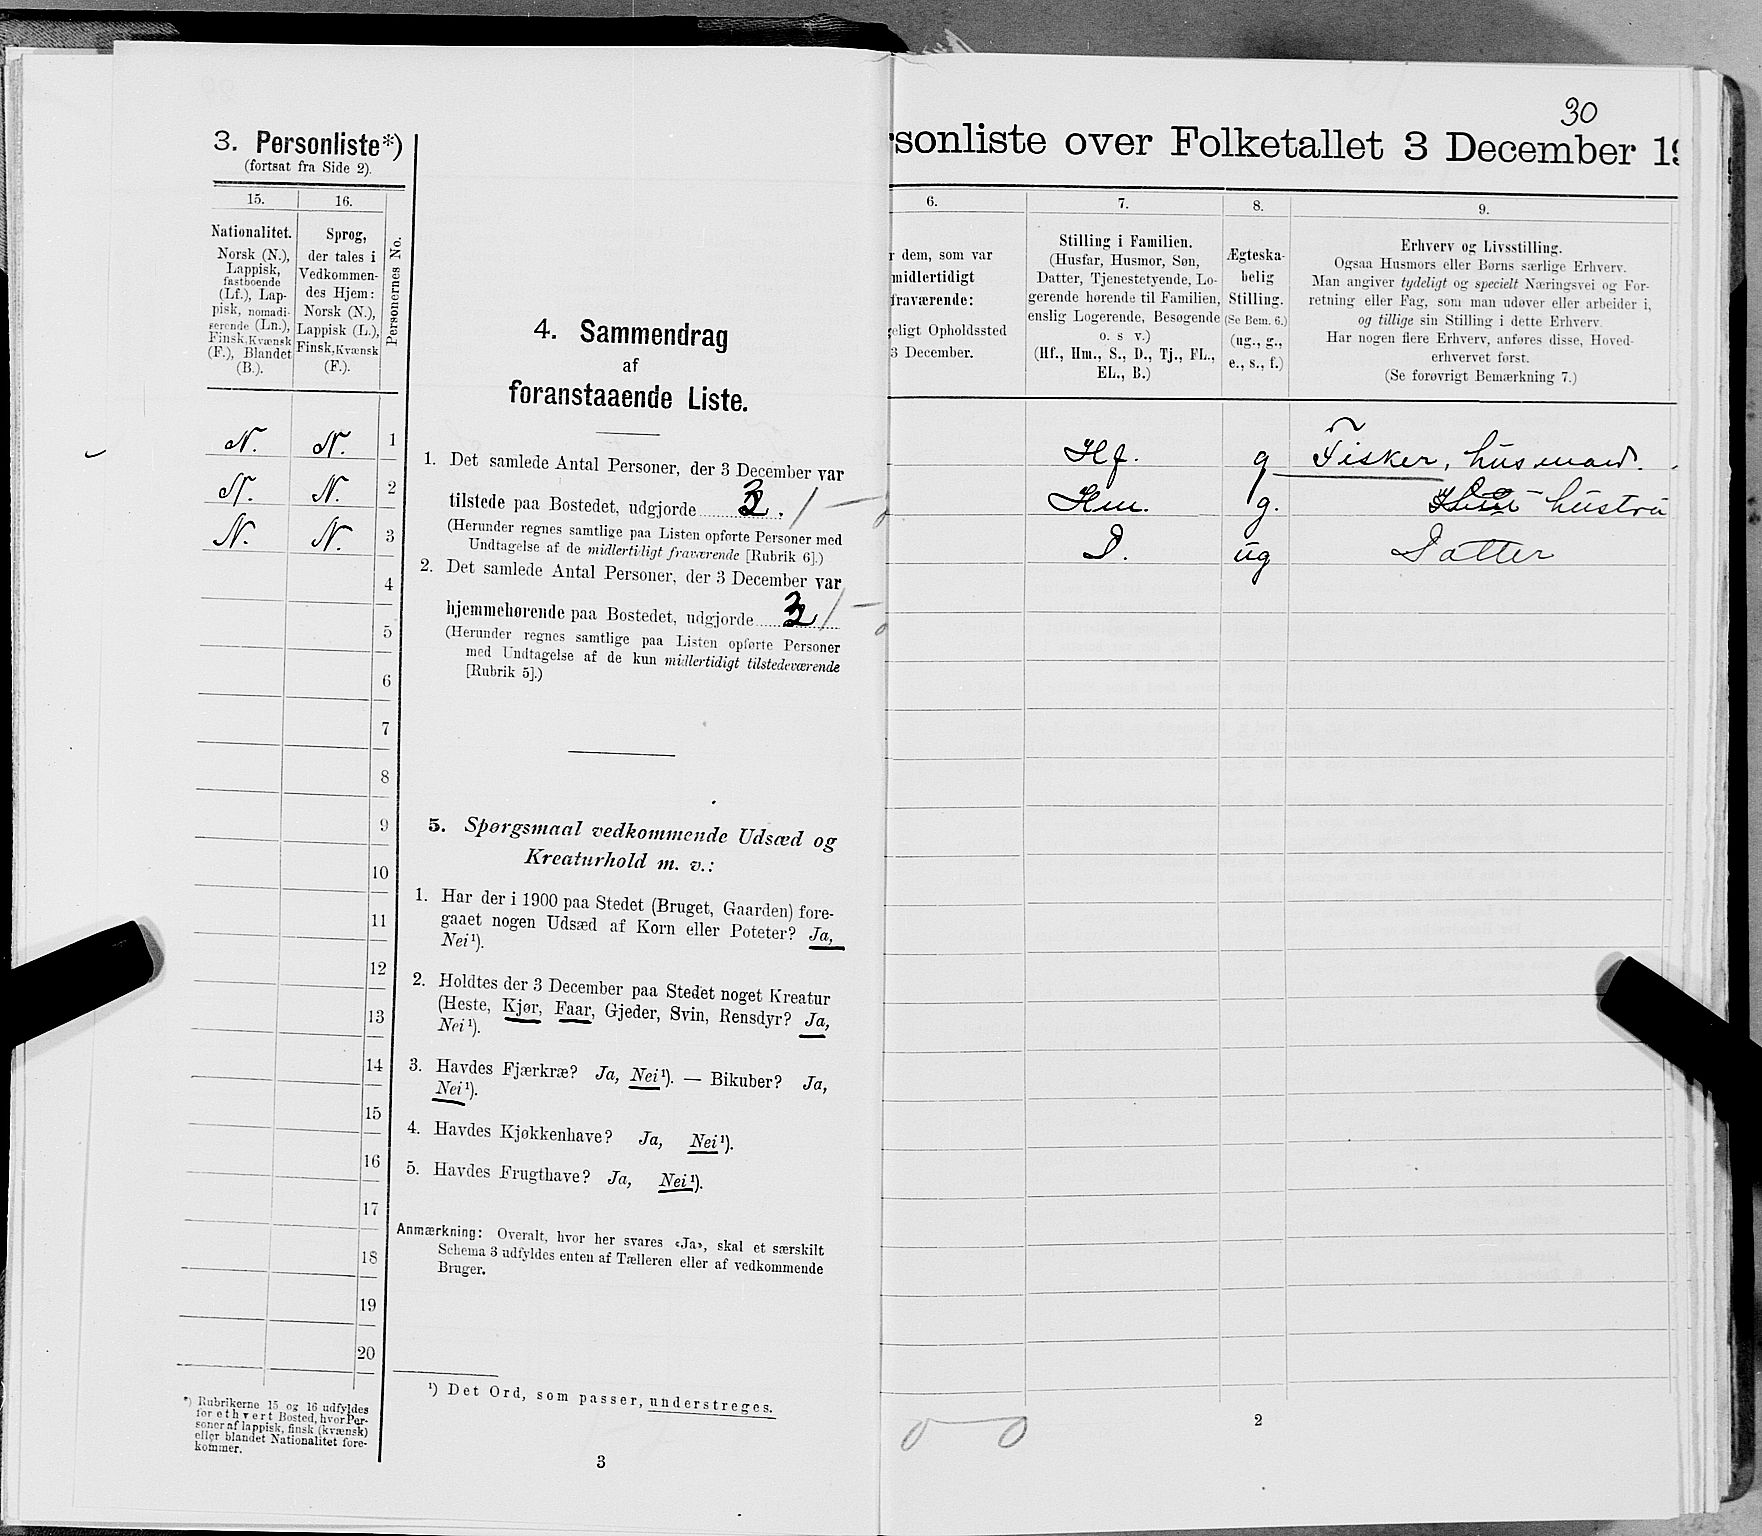 3. Personliste*)
(fortsat fra Side 2).
15.
16.
Personernes No.
Nationalitet.
Norsk (N.),
Lappisk,
fastboende
(Lf.), Lap-
pisk, nomadi-
serende (Ln.),
Finsk, Kvænsk
(F.), Blandet
(B.).
Sprog,
der tales i
Vedkommen-
des Hjem:
Norsk (N.),
Lappisk (L.),
Finsk, Kvænsk
(F.).
N. N. 1
N. N. 2
N. N. 3
4
5
6
7
8
9
10
11
12
13
14
15
16
17
18
19
20
*) Rubrikerne 15 og 16 udfyldes
for ethvert Bosted, hvor Per-
soner af lappisk, finsk (kvænsk)
eller blandet Nationalitet fore-
kommer.
4. Sammendrag
af
foranstaaende Liste.
1. Det samlede Antal Personer, der 3 December var
tilstede paa Bostedet, udgjorde 3.
(Herunder regnes samtlige paa Listen opførte Personer med
Undtagelse af de midlertidigt fraværende [Rubrik 6].)
2. Det samlede Antal Personer, der 3 December var
hjemmehørende paa Bostedet, udgjorde 3
(Herunder regnes samtlige paa Listen opførte Personer
med Undtagelse af de kun midlertidigt tilstedeværende
[Rubrik 5].)
5. Spørgsmaal vedkommende Udsæd og
Kreaturhold m. v.:
1. Har der i 1900 paa Stedet (Bruget, Gaarden) fore-
gaaet nogen Udsæd af Korn eller Poteter? Ja,
Nei¹).
2. Holdtes der 3 December paa Stedet noget Kreatur
(Heste, Kjør, Faar, Gjeder, Svin, Rensdyr? Ja,
Nei¹).
3. Havdes Fjærkræ? Ja, Nei¹). — Bikuber? Ja,
Nei¹).
4. Havdes Kjøkkenhave? Ja, Nei¹).
5. Havdes Frugthave? Ja, Nei¹).
Anmærkning: Overalt, hvor her svares «Ja», skal et særskilt
Schema 3 udfyldes enten af Tælleren eller af vedkommende
Bruger.
¹) Det Ord, som passer, understreges.
3
30
rsonliste over Folketallet 3 December 19
6.
7.
8.
9.
r dem, som var
midlertidigt
fraværende:
geligt Opholdssted
3 December.
Stilling i Familien.
(Husfar, Husmor, Søn,
Datter, Tjenestetyende, Lo-
gerende hørende til Familien,
enslig Logerende, Besøgende
o. s v.)
(Hf., Hm., S., D., Tj., FL.,
EL., B.)
Ægteska-
belig
Stilling.
(Se Bem. 6.)
(ug., g.,
e., s., f.)
Erhverv og Livsstilling.
Ogsaa Husmors eller Børns særlige Erhverv.
Man angiver tydeligt og specielt Næringsvei og For-
retning eller Fag, som man udøver eller arbeider i,
og tillige sin Stilling i dette Erhverv.
Har nogen flere Erhverv, anføres disse, Hoved-
erhvervet først.
(Se forøvrigt Bemærkning 7.)
Hf. g Fisker, husmand.
Hm. g. hustru
D. ug Datter
2